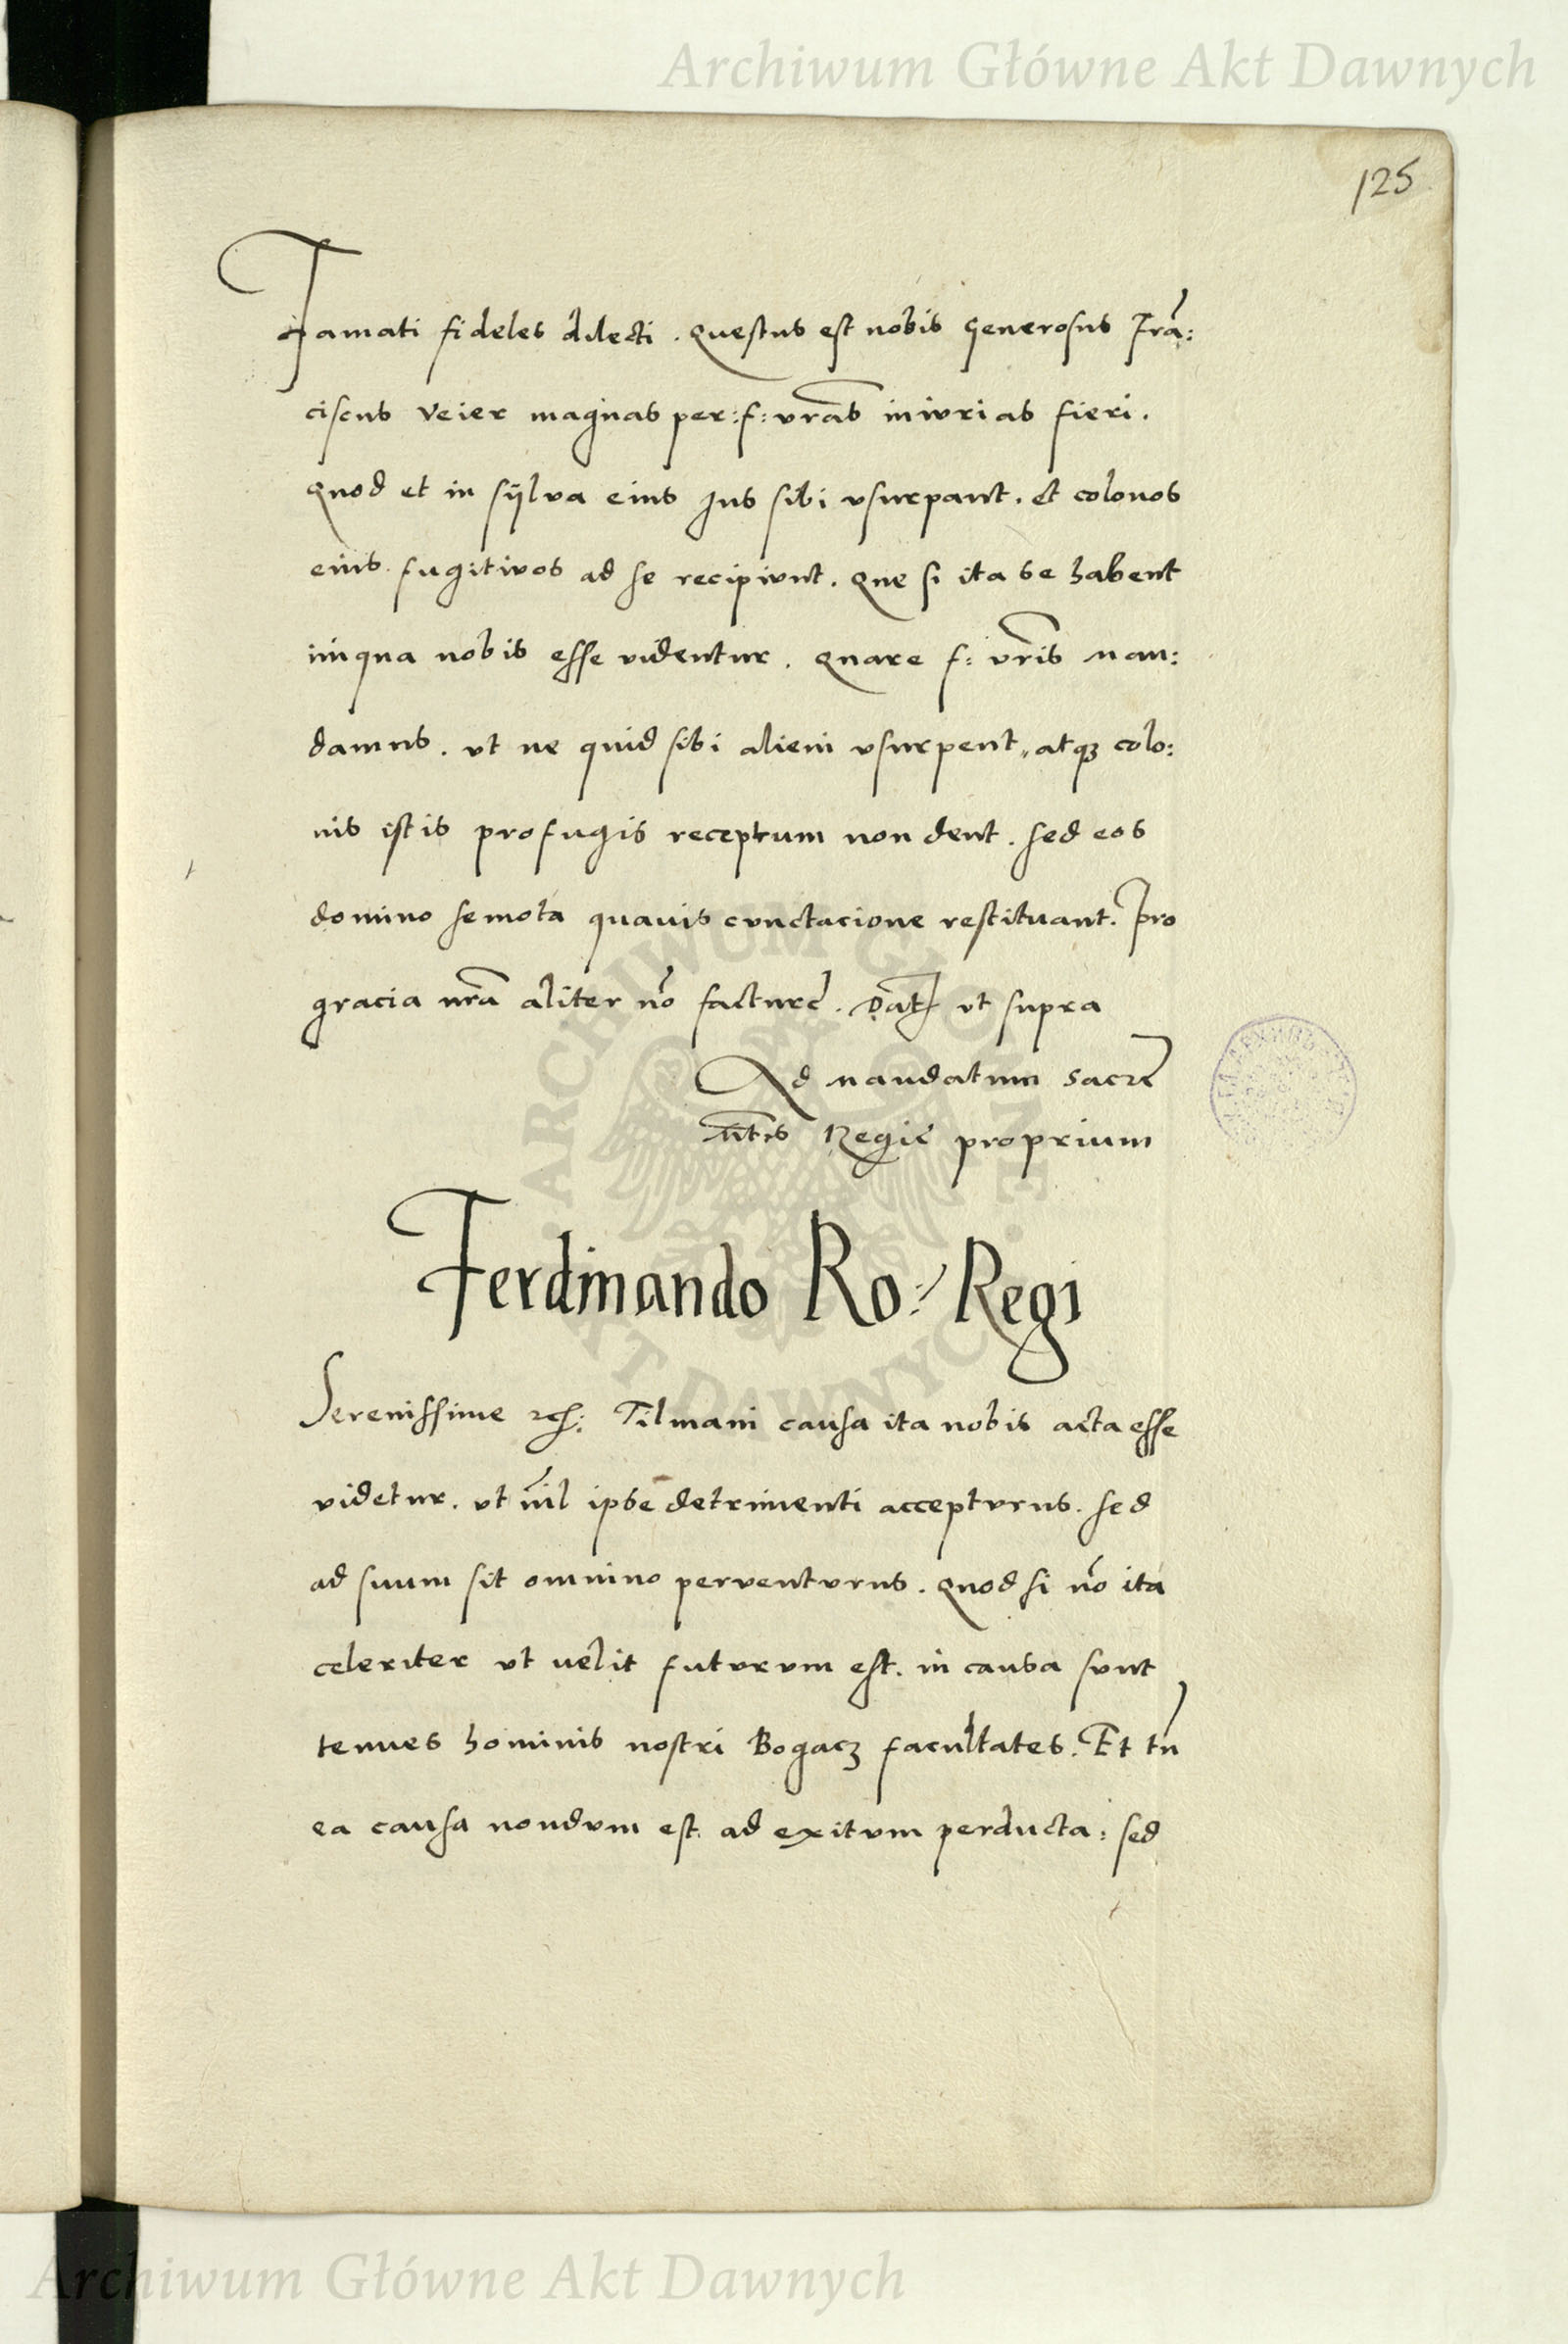 Archiwum Główne Akt Dawnych
125
Famati fideles dilecti. Questus est nobis Generosus Frā:
ciscus Veier magnas per: f: vrās iniurias fieri.
Quod et in sijlva eius Jus sibi vsurpant. et colonos
eius fugitivos ad se recipiunt. Que si ita se habent
iniqua nobis esse videntur. Quare f: vrīs man:
damus. vt ne quid sibi alieni vsurpent, atqꝫ colo:
nis istis profugis receptum non dent. sed eos
domino semota quavis cunctacione restituant. Pro
gracia nrā aliter nō facture. Dat̄ vt supra
Ad mandatum sacre
mtis Regie proprium
Ferdinando Ro: Regi
Serenissime etc: Tilmani causa ita nobis acta esse
videtur. vt nīl ipse detrimenti accepturus. sed
ad suum sit omnino perventurus. Quod si nō ita
celeriter vt velit futurum est. in causa sunt
tenues hominis nostri Bogacz facultates. Et tn̄
ea causa nondum est ad exitum perducta: sed
ARCHIWUM GŁÓWNE AKT DAWNYCH
Archiwum Główne Akt Dawnych